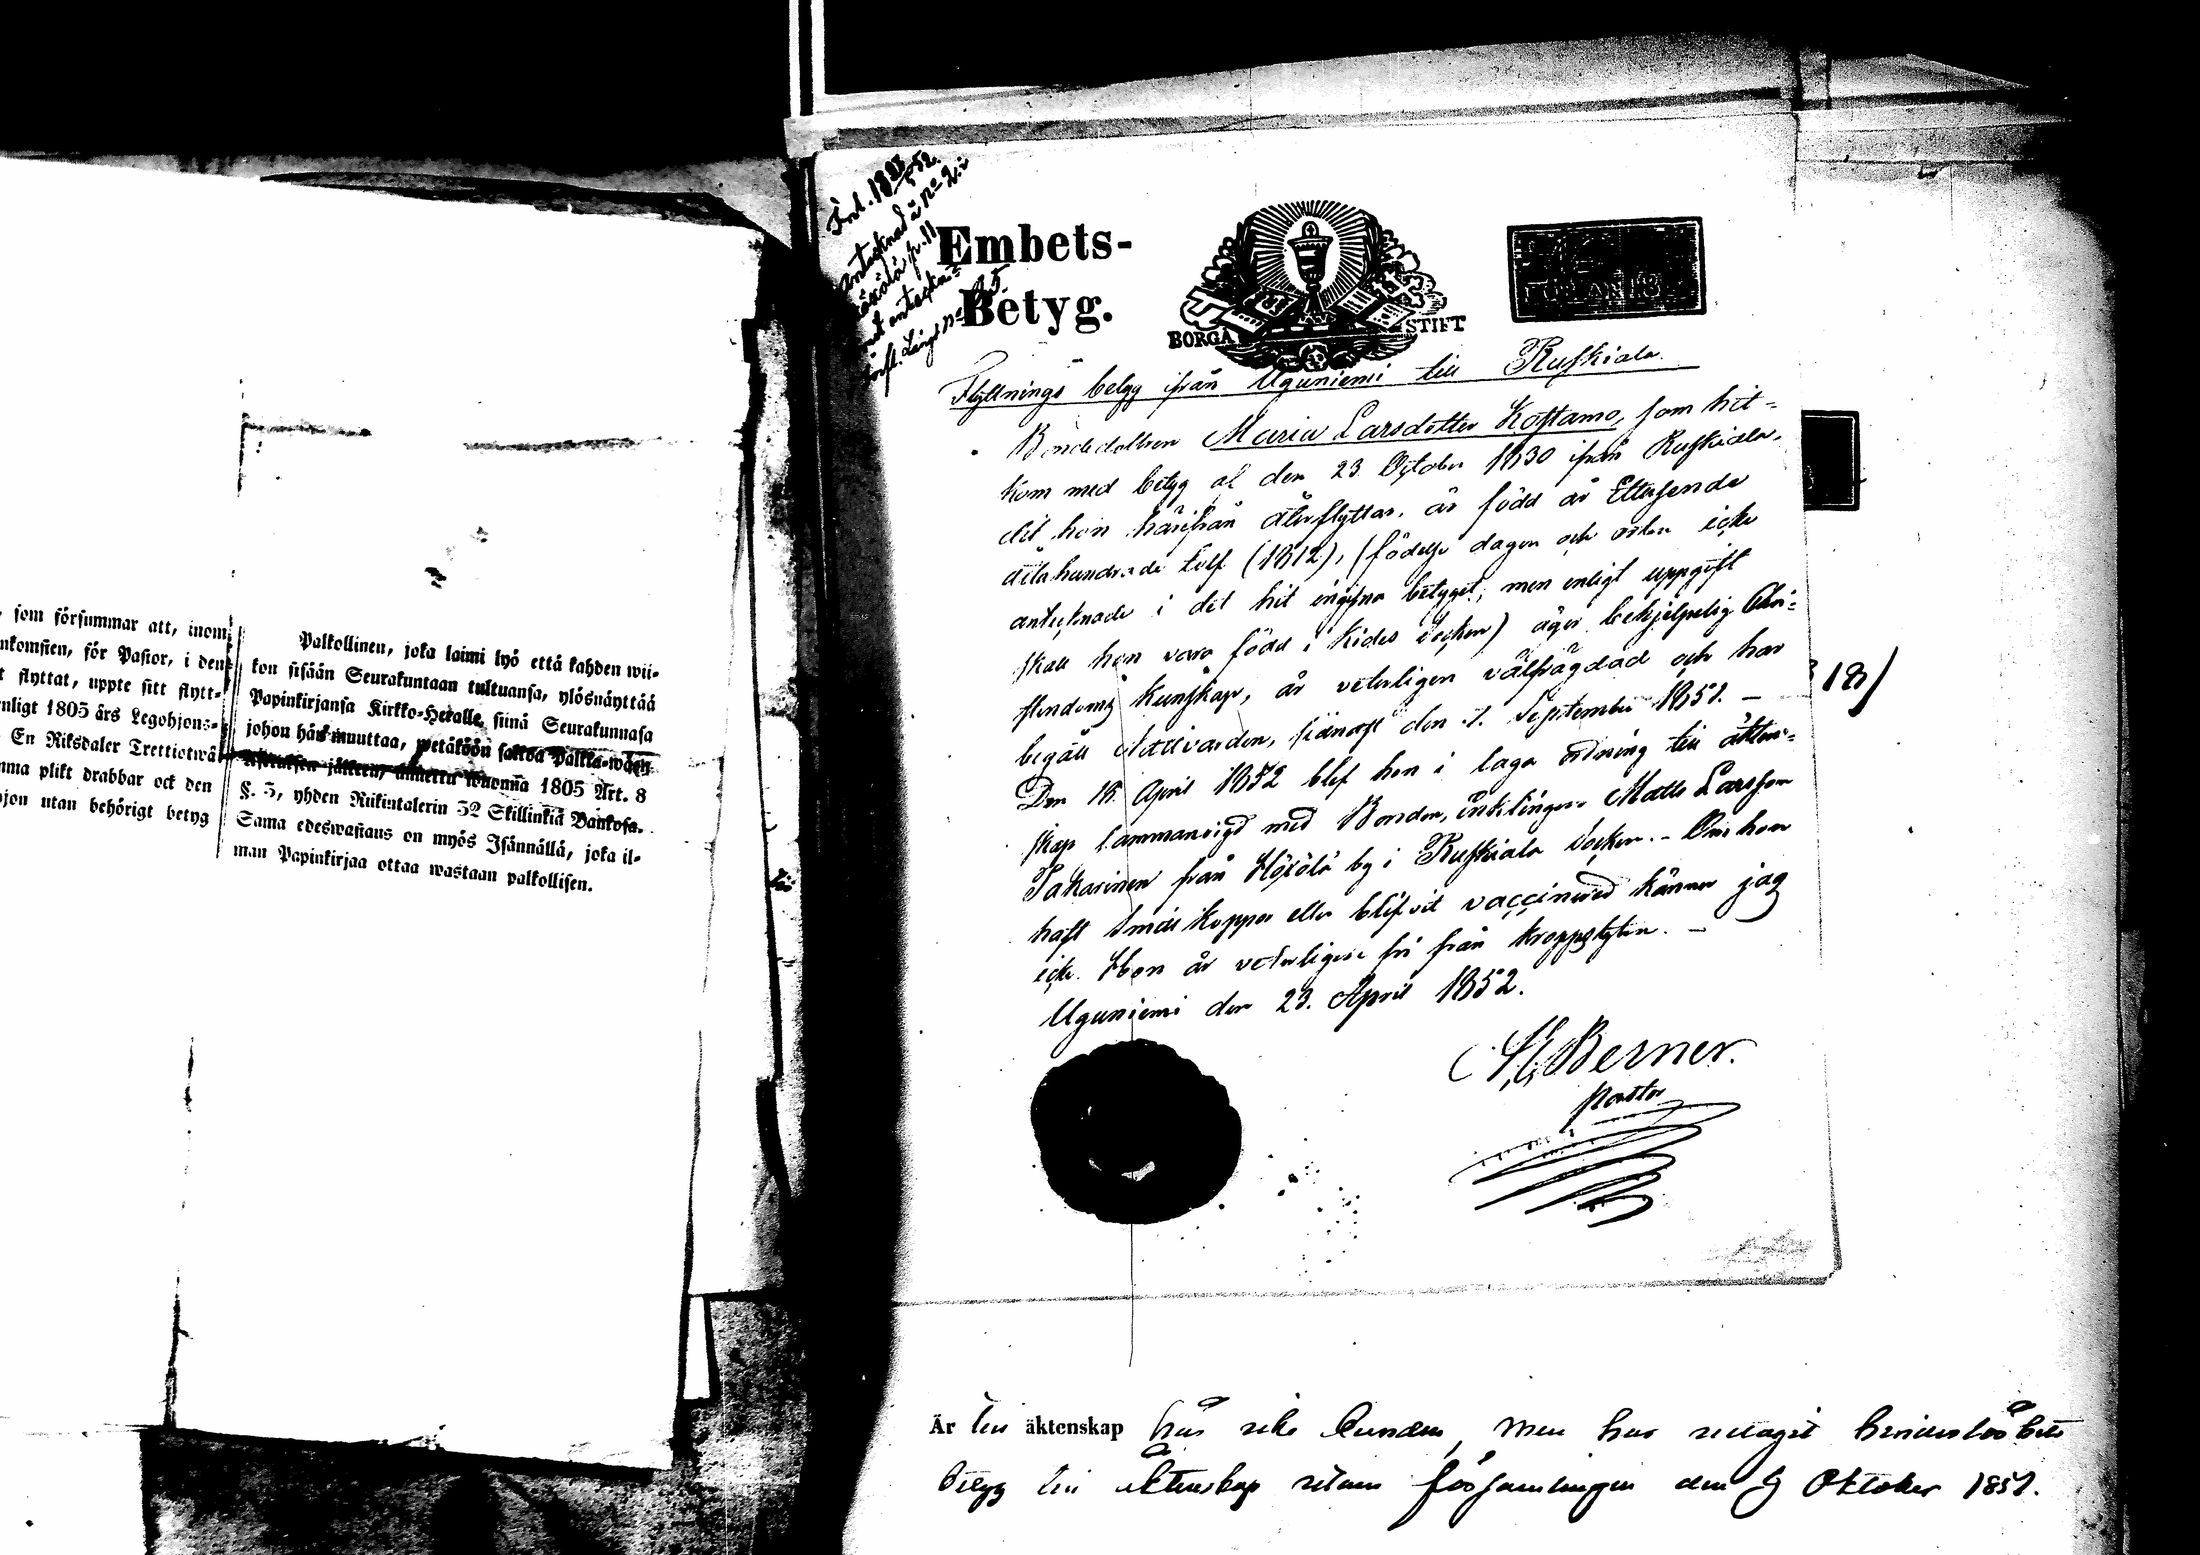 som försummar att, inom
nkomsten, för Pastor, i den
t flyttat, uppte sitt flytt-
nligt 1805 års Legohjons-
En Riksdaler Trettiotwå
mma plikt drabbar ock den
jon utan behörigt betyg
Palkollinen, joka laimi lyö että kahden wii-
kon sisään Seurakuntaan tultuansa, ylösnäyttää
Papinkirjansa Kirkko-Herralle siinä Seurakunnasa
johon hän muuttaa, wetäköön sakkoa Palkka-wäen
Asetuksen jälkeen, annettu wuonna 1805 Art. 8
§. 3, yhden Riikintalerin 32 Skillinkiä Bankosa.
Sama edeswastaus on myös Isännällä, joka il-
man Papinkirjaa ottaa wastaan palkollisen.
Embets-
Betyg.
BORGÅ STIFT
Flyttnings betyg ifrån Uguniemi till Ruskiala.
Bondedottren Maria Larsdotter Kostamo, som hit-
kom med betyg af den 23 October 1830 ifrån Ruskiala,
dit hon härifrån återflyttar, är född år Ettusende
åttahundrade tolf (1812), (födelse dagen och orten icke
antecknade i det hit ingifna betyget, men enligt uppgift
skall hon vara född i Kides Socken) äger behjelpelig Chri-
stendoms kunskap, är veterligen välfrägdad och har
begått Nattvarden, sednast den 7. September 1851. —
Den 18 April 1852 blef hon i laga ordning till äkten-
skap sammanvigd med Bonden, enklingen Matts Larsson
Pakarinen från Höxölä by i Ruskiala Socken. - Om hon
haft Smittkoppor eller blifvit vaccinerad känner jag
icke. Hon är veterligen fri från kroppslyten. —
Uguniemi den 23. April 1852.
Berner.
pastor
18)
Är till äktenskap här icke bunden, men har uttagit hinderslöshets
betyg till äktenskap utom församlingen den 9 Oktober 1851.